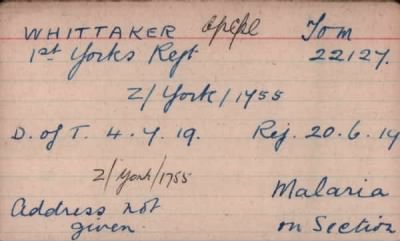 WHITTAKER Tom
1st Yorks Regt 22127.
Z/York/1755
D. of T. 4.7.19. Rej. 20.6.19
Z/York/1755
Malaria
Address not on Section
given.